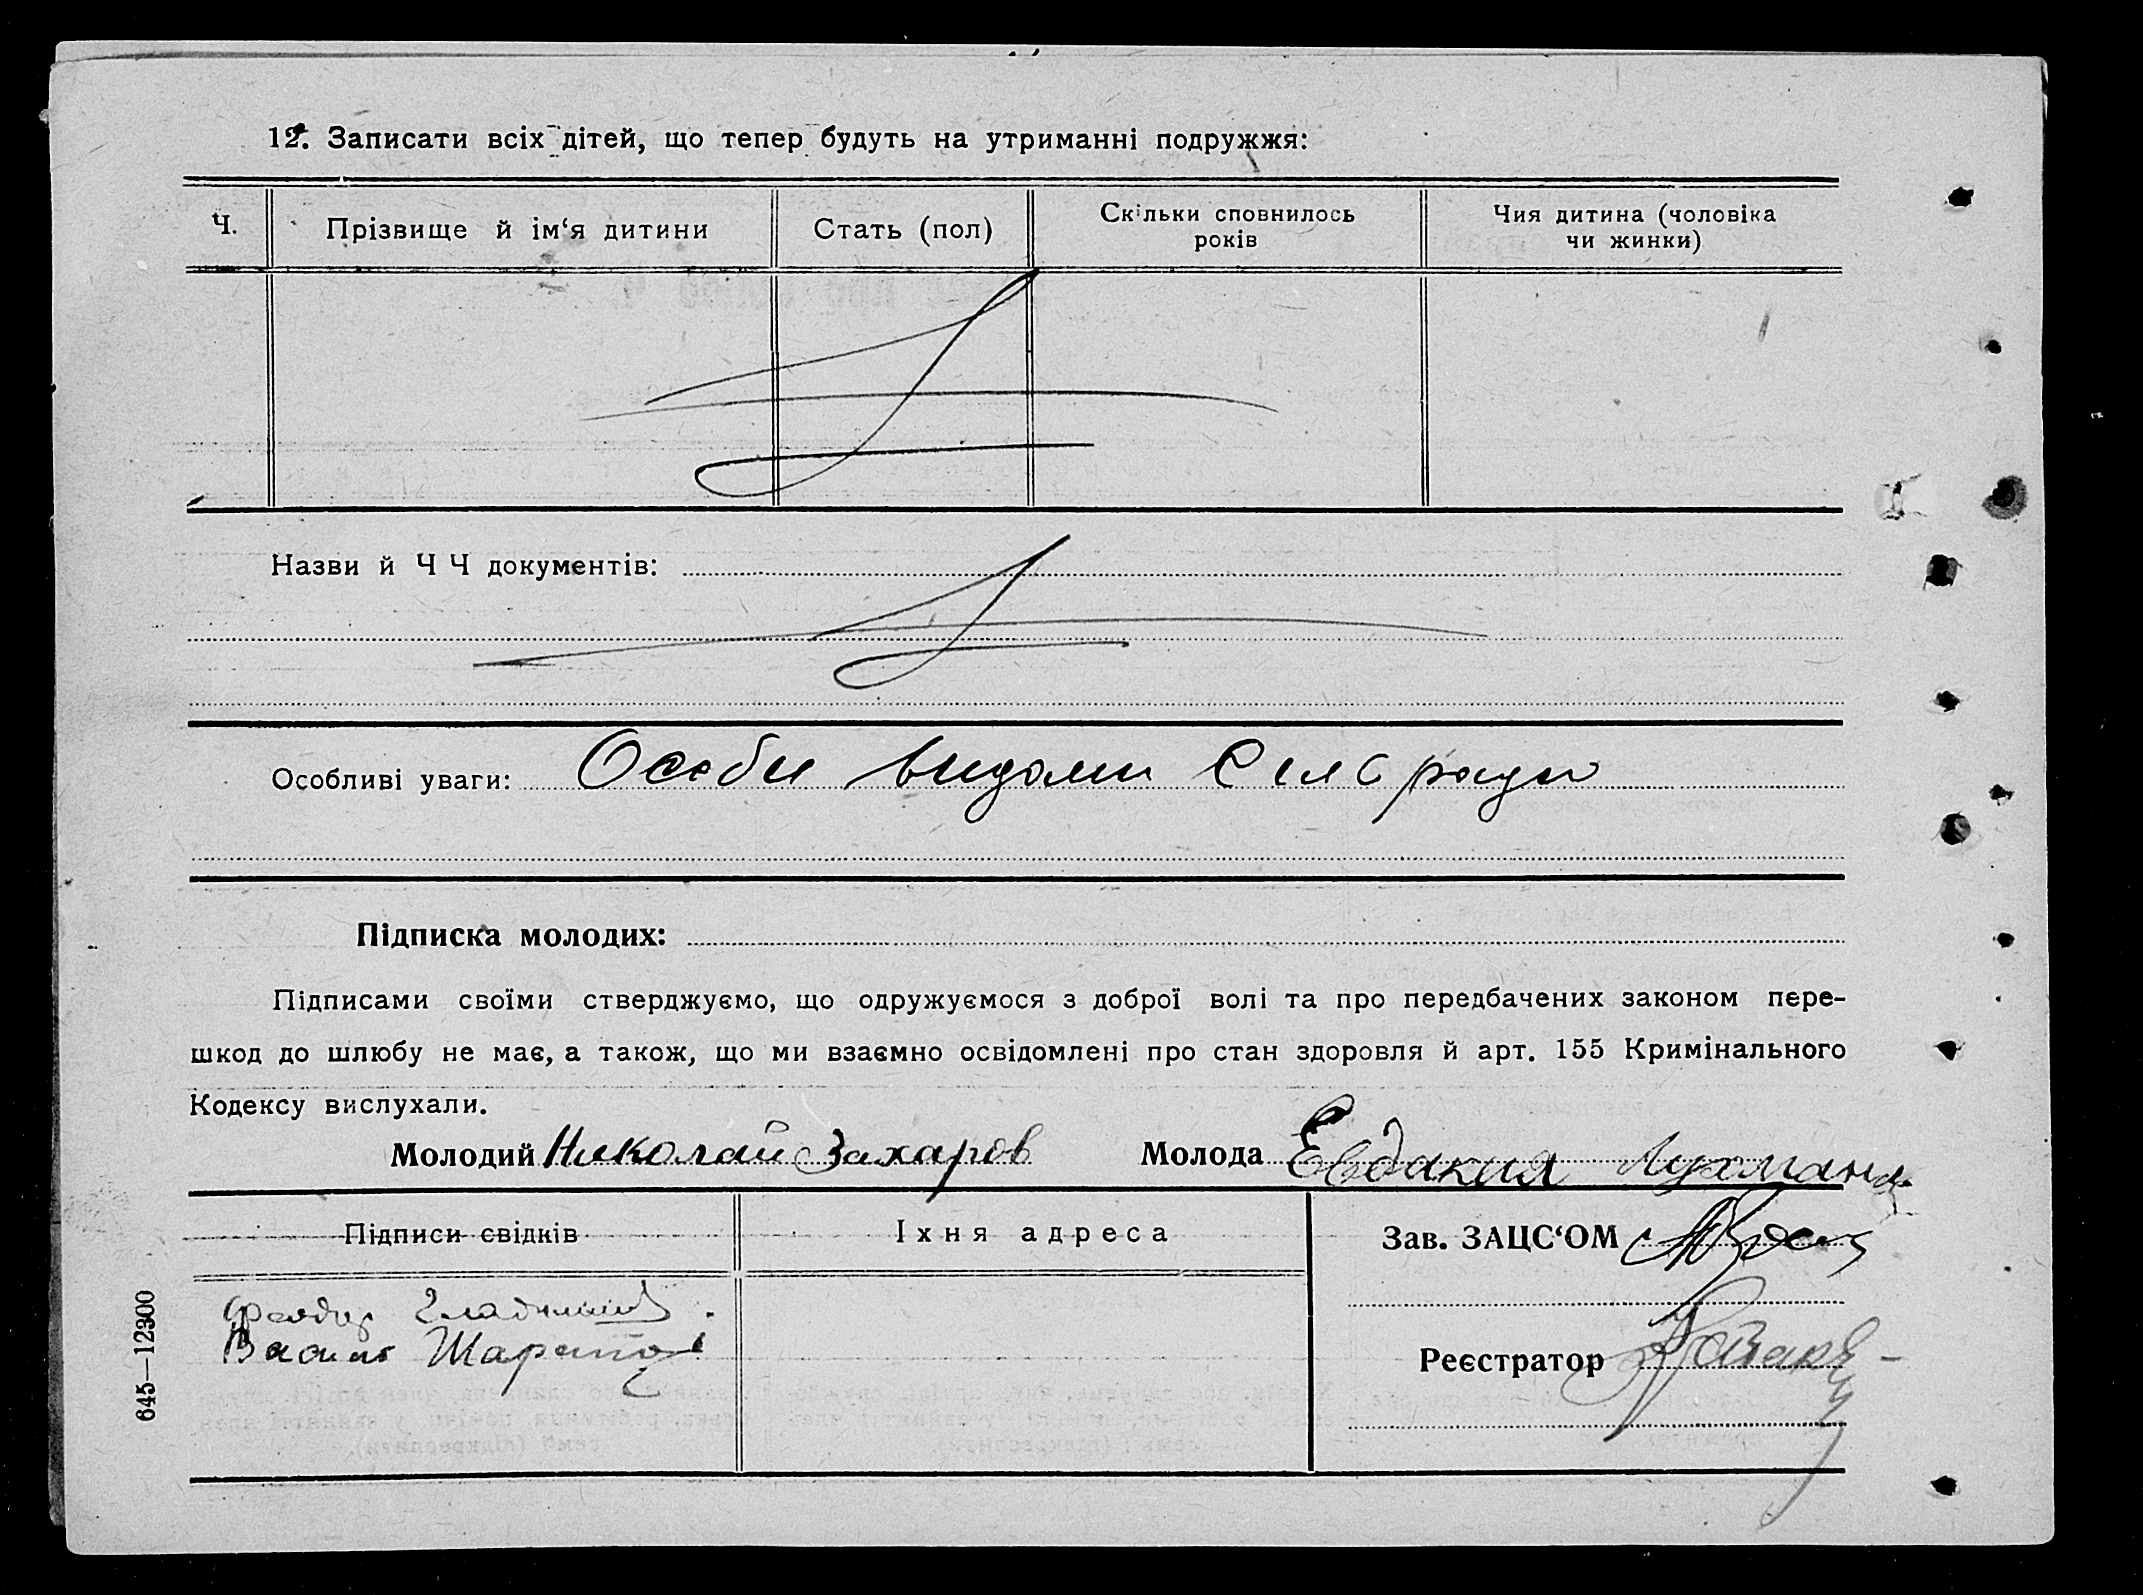 12. Записати всіх дітей, що тепер будуть на утриманні подружжя:
Ч.
Прізвище й ім‘я дитини
Стать (пол)
Скільки сповнилось
років
Чия дитина (чоловіка
чи жинки)
Назви й Ч Ч документів:
Особливі уваги: Особи видоми
Підписка молодих:
Підписами своїми стверджуємо, що одружуємося з доброї волі та про передбачених законом пере-
шкод до шлюбу не має, а також, що ми взаємно освідомлені про стан здоровля й арт. 155 Кримінального
Кодексу вислухали.
Молодий Николай Захаров Молода Евдакия
Підписи свідків
Іхня адреса
Зав. ЗАЦС‘ОМ
Реєстратор
645—12900